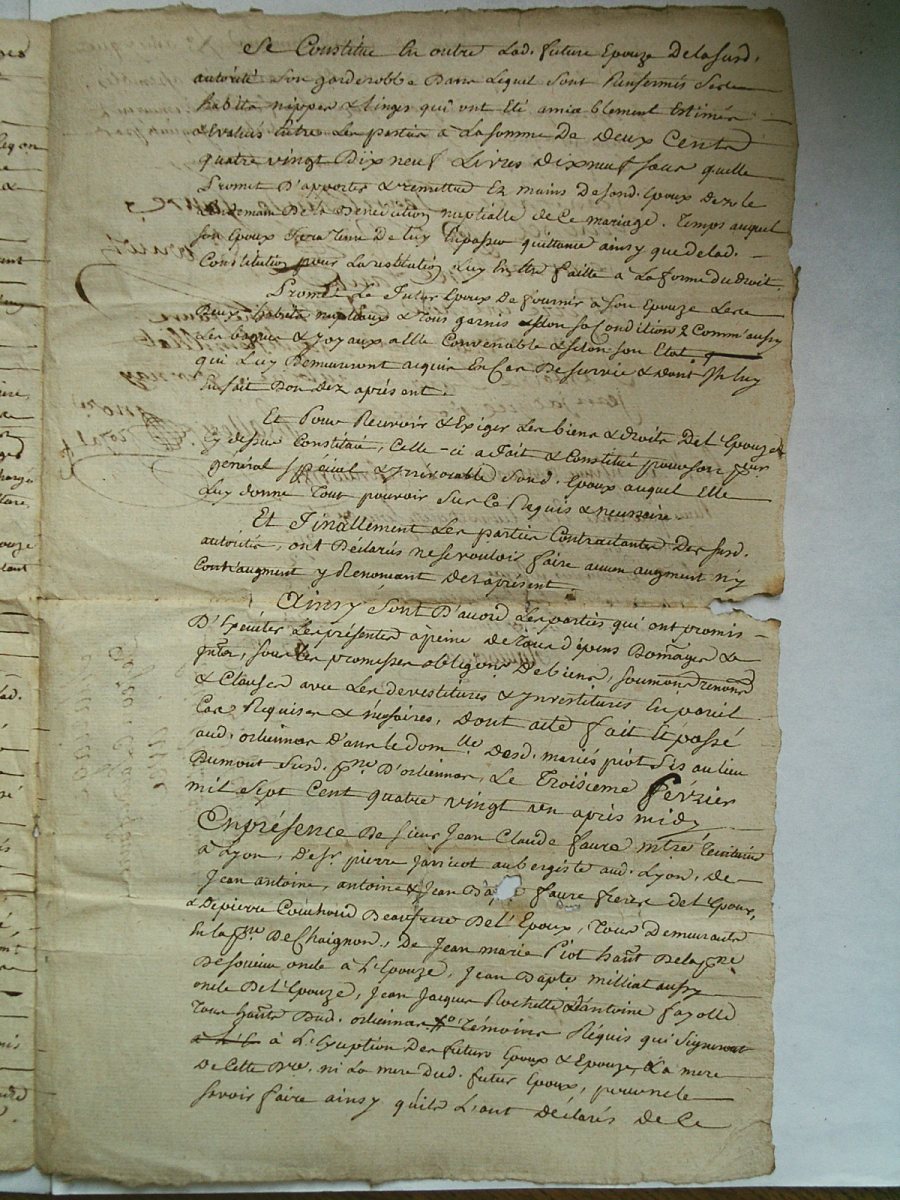 Se Constitue En outre Lad. future Epouze De la susd.
autorité Son garderobbe Dans Lequel Sont Renfermés Ses
habits nippes & linges qui ont Eté amiablement Estimés
& Evalués Entre Les parties à La somme De Deux Cents
quatre vingt Dix neuf Livres Dixneuf sous quelle
Promet D'apporter & remettre Ez mains De sond. Epoux Dez le
Lendemain De la Benediction nuptialle de Ce mariage. Temps auquel
son Epoux Sera Tenu De Luy En passer quittance ainsy que de lad.
Constitution pour La restitution Luy En Etre faitte à La forme du Droit.
Promet Le futur Epoux De fournir à Son Epouze Les
Deux habits nuptiaux & Tous garnis selon sa Condition & Comm'aussy
Les bagues & joyaux Convenable & selon Son Etat
qui Luy Demeureront acquis En Cas De Survie & Dont Jl Luy
En fait Don Dez aprésent.
Et Pour Recevoir & Exiger Les biens & Droits De L'Epouze
Cy dessus Constitués, Celle-ci a fait & Constitué pour son pur
général spécial & jrrévocable Sond. Epoux auquel Elle
Luy donne Tout pouvoir Sur Ce Requis & necessaire
Et Finallement Les parties Contractantes Des Susd.
autorités, ont Déclarés ne se vouloir faire aucun augment n'y
Contraugment y Renonçant Dez aprésent
Ainsy Sont D'acord Les parties qui ont promis
D'Exécuter Les présentes à peine de Tous Dépens Domages &
jnter, sous Les promesses oblig.ons De biens, soumons renons
& Clauses avec Les devestitures & jnvestitures En pareil
Cas Requises & nécésaires, Dont acte fait & passé
aud. orliennas Dans le dom.lle Desd. mariés piot sis au lieu
Dumont Susd. p.sse D'orliennas, Le Troisieme fevrier
mil Sept Cent quatre vingt un après midy
En présence De Sieur Jean Claude faure mtre
à Lyon, De sr. pierre Jarricot aubergiste aud. Lyon, De
Jean antoine, antoine & Jean faure freres de L'Epoux,
& De pierre Couchoud Beaufrere De L'Epoux, Tous Demeurants
En la p.sse De Chaignon, De Jean marie Piot hant De la p.sse
De soucieu oncle à L'Epouze, Jean Bapte milliat aussy
oncle De L'Epouze, Jean Jacques Rochette & antoine fayolle
Tous hants Dud. orliennas Témoins Réquis qui Signeront
à L'Exception Des futurs Epoux & Epouze, La mere
De Cette D.re ni La mere Dud. futur Epoux, pour ne le
savoir faire ainsy quils L'ont Déclarés De Ce